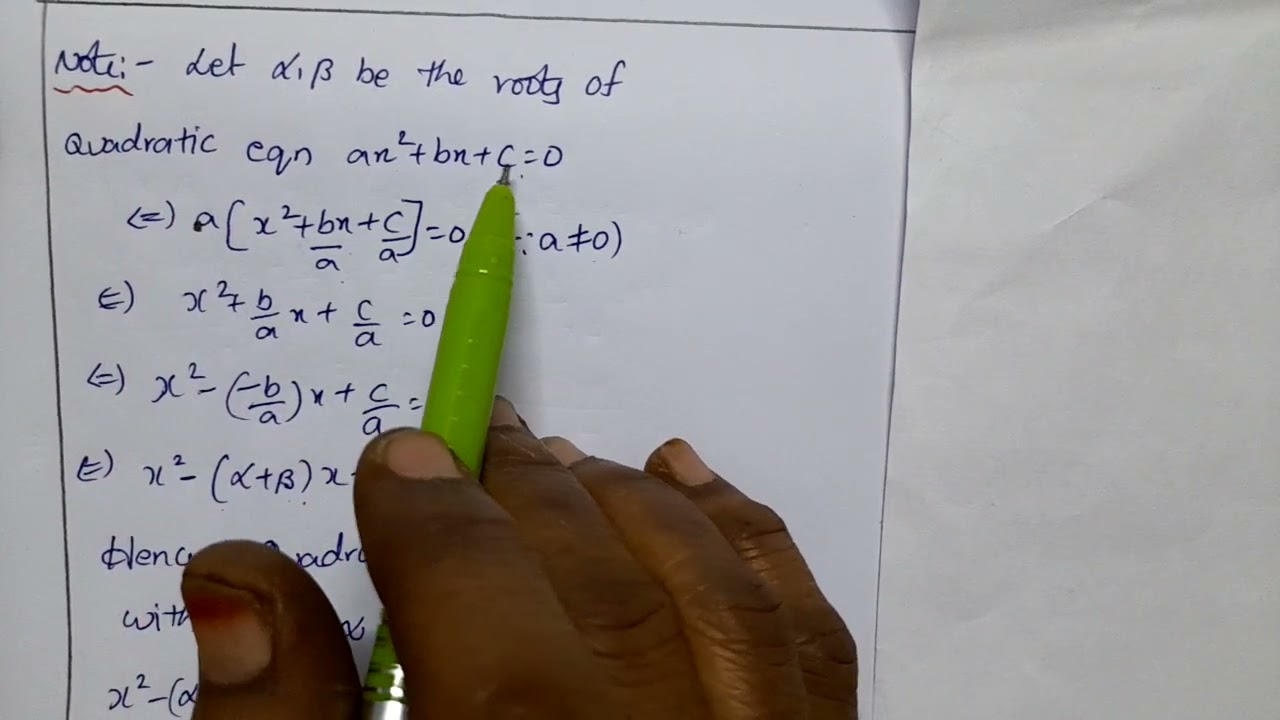 Note:- Let α, β be the roots of
Quadratic eqn ax²+bx+c=0
⇔ a[x²+bx/a+c/a]=0 ∵a≠0)
⇔ x²+b/a x+c/a=0
⇔ x²-(-b/a)x+c/a=
⇔ x²-(α+β)x
with
x²-(α